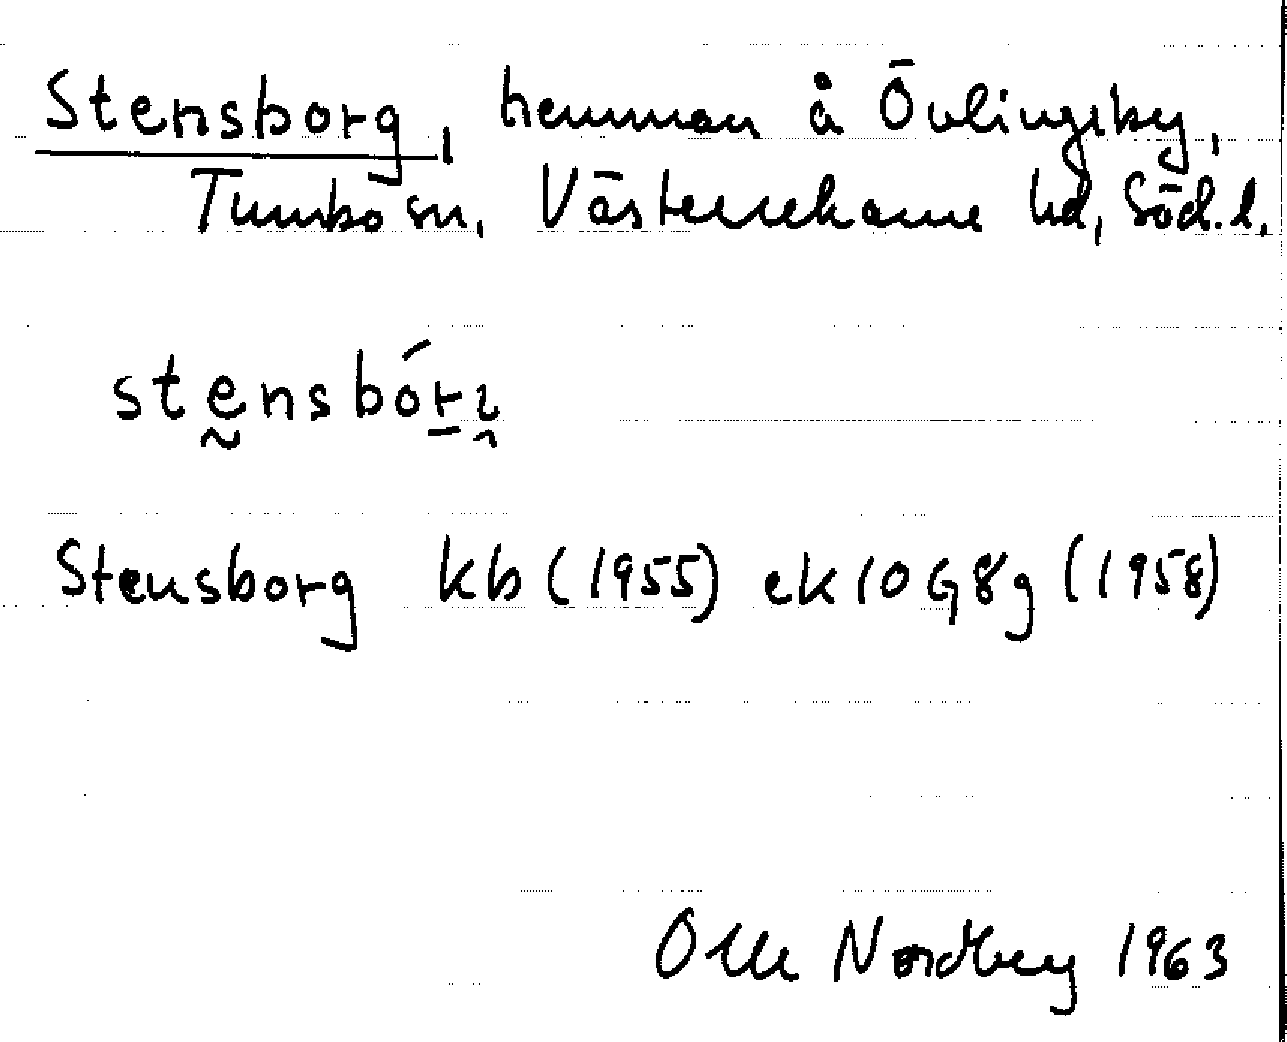 Stensborg, hemman å Övlingsby,
Tumbo sn, Västerrekarne hd, Söd. l.
stensbórı
Stensborg kb (1955) ek 10 G 8 g (1958)
Olle Nordberg 1963